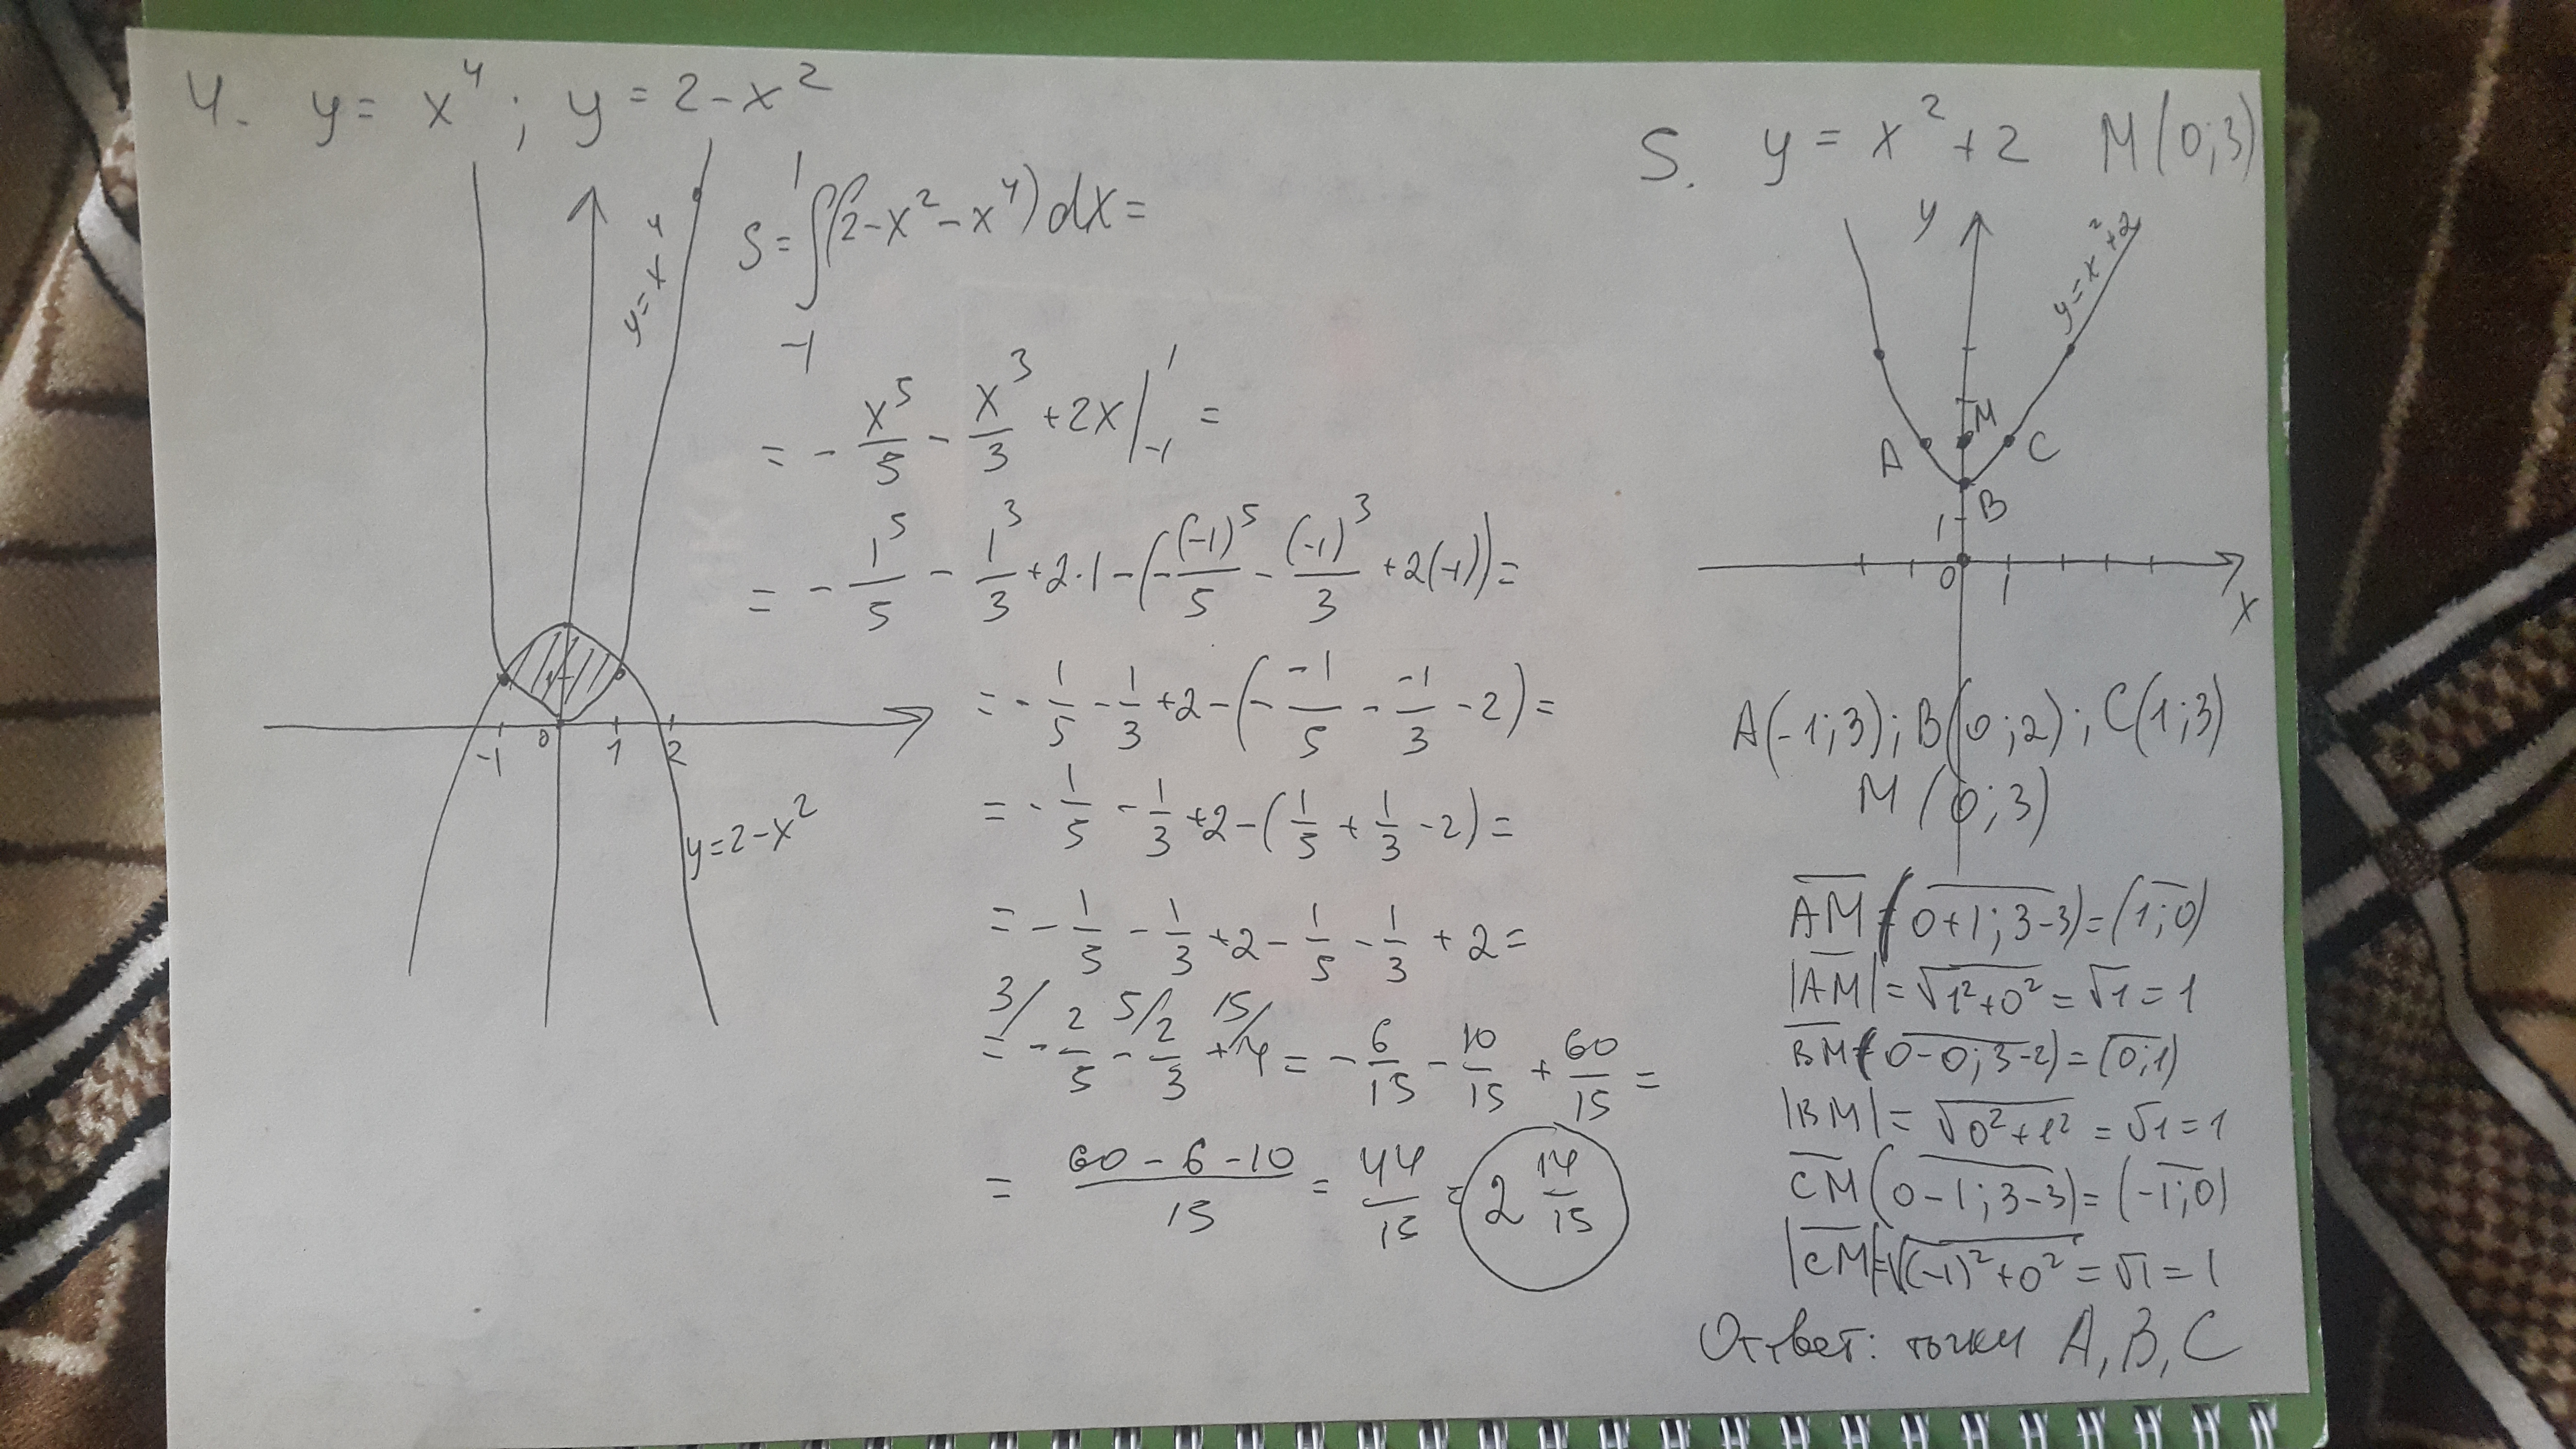 4. y = x⁴ ; y = 2 - x²
y = x⁴
1
-1 0 1 2
y = 2 - x²
S = ∫₋₁¹ (2 - x² - x⁴) dx =
= - x⁵/5 - x³/3 + 2x |₋₁¹ =
= - 1⁵/5 - 1³/3 + 2·1 - (- (-1)⁵/5 - (-1)³/3 + 2(-1)) =
= - 1/5 - 1/3 + 2 - (- -1/5 - -1/3 - 2) =
= - 1/5 - 1/3 + 2 - (1/5 + 1/3 - 2) =
= - 1/5 - 1/3 + 2 - 1/5 - 1/3 + 2 =
3/ 5/ 15/
= - 2/5 - 2/3 + 4 = - 6/15 - 10/15 + 60/15 =
= (60 - 6 - 10)/15 = 44/15 = 2 14/15
5. y = x² + 2 M(0;3)
y
y = x² + 2
M
A C
B
1
0 1
x
A(-1;3); B(0;2); C(1;3)
M(0;3)
AM = (0+1; 3-3) = (1;0)
|AM| = √1²+0² = √1 = 1
BM (0-0; 3-2) = (0;1)
|BM| = √0²+1² = √1 = 1
CM (0-1; 3-3) = (-1;0)
|CM| = √(-1)²+0² = √1 = 1
Ответ: точки A, B, C